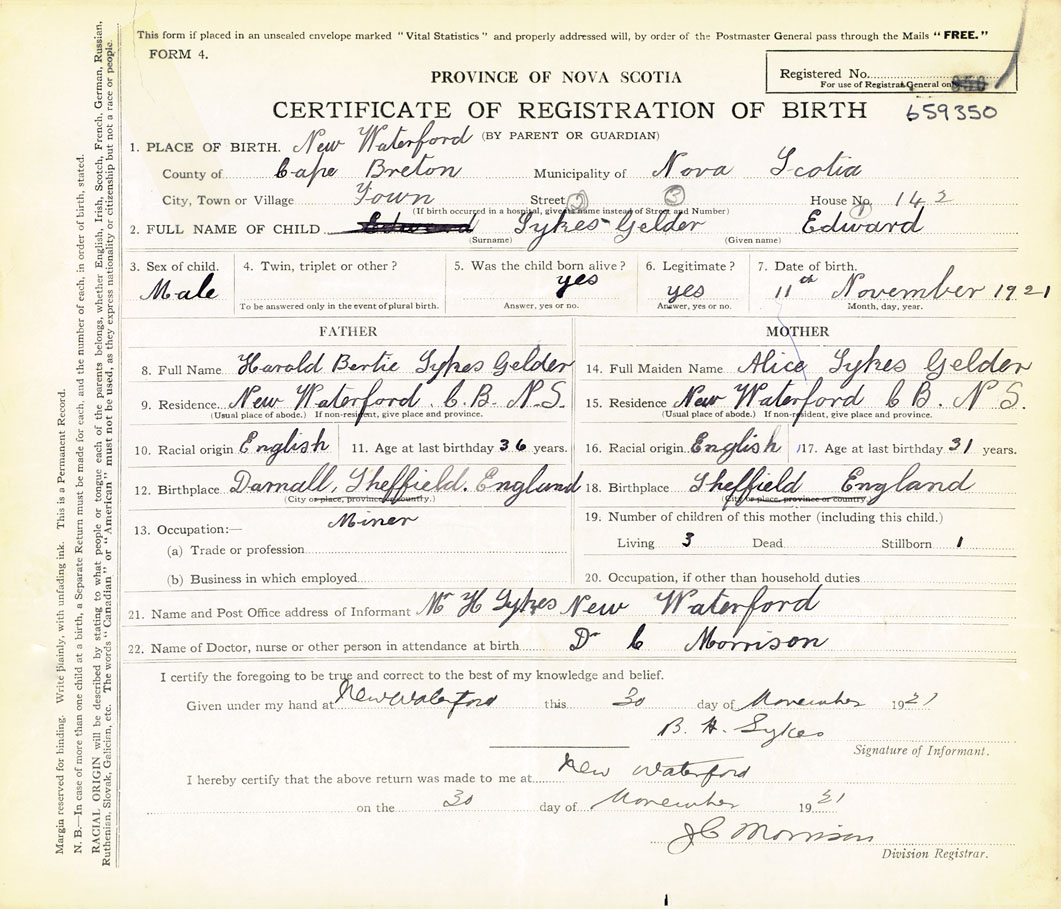 This form if placed in an unsealed envelope marked "Vital Statistics" and properly addressed will, by order of the Postmaster General pass through the Mails "FREE."
FORM 4.
Registered No.
For use of Registrar General only
PROVINCE OF NOVA SCOTIA
CERTIFICATE OF REGISTRATION OF BIRTH 659350
(BY PARENT OR GUARDIAN)
1. PLACE OF BIRTH. New Waterford
County of Cape Breton Municipality of Nova Scotia
City, Town or Village Town Street 2 3 House No. 142
(If birth occurred in a hospital, give its name instead of Street and Number) 1
2. FULL NAME OF CHILD Edward Sykes-Gelder Edward
(Surname) (Given name)
3. Sex of child. 4. Twin, triplet or other? 5. Was the child born alive? 6. Legitimate? 7. Date of birth.
Male yes yes 11th November 1921
To be answered only in the event of plural birth. Answer, yes or no. Answer, yes or no. Month, day, year.
FATHER
8. Full Name Harold Bertie Sykes Gelder
9. Residence New Waterford. C.B. N.S.
(Usual place of abode.) If non-resident, give place and province.
10. Racial origin English 11. Age at last birthday 36 years.
12. Birthplace Darnall, Sheffield. England
(City or place, province or country.)
13. Occupation:— Miner
(a) Trade or profession
(b) Business in which employed
MOTHER
14. Full Maiden Name Alice Sykes Gelder
15. Residence New Waterford C B. N S.
(Usual place of abode.) If non-resident, give place and province.
16. Racial origin English 17. Age at last birthday 31 years.
18. Birthplace Sheffield England
(City or place, province or country.)
19. Number of children of this mother (including this child.)
Living 3 Dead Stillborn 1
20. Occupation, if other than household duties
21. Name and Post Office address of Informant Mr H Sykes New Waterford
22. Name of Doctor, nurse or other person in attendance at birth Dr C Morrison
I certify the foregoing to be true and correct to the best of my knowledge and belief.
Given under my hand at New Waterford this 30 day of November 1921
B. H. Sykes
Signature of Informant.
I hereby certify that the above return was made to me at New Waterford
on the 30 day of November 1921
J C Morrison
Division Registrar.
Margin reserved for binding. Write plainly, with unfading ink. This is a Permanent Record.
N. B.—In case of more than one child at a birth, a Separate Return must be made for each, and the number of each, in order of birth, stated.
RACIAL ORIGIN will be described by stating to what people or tongue each of the parents belongs, whether English, Irish, Scotch, French, German, Russian,
Ruthenian, Slovak, Galician, etc. The words "Canadian" or "American" must not be used, as they express nationality or citizenship but not a race or people.